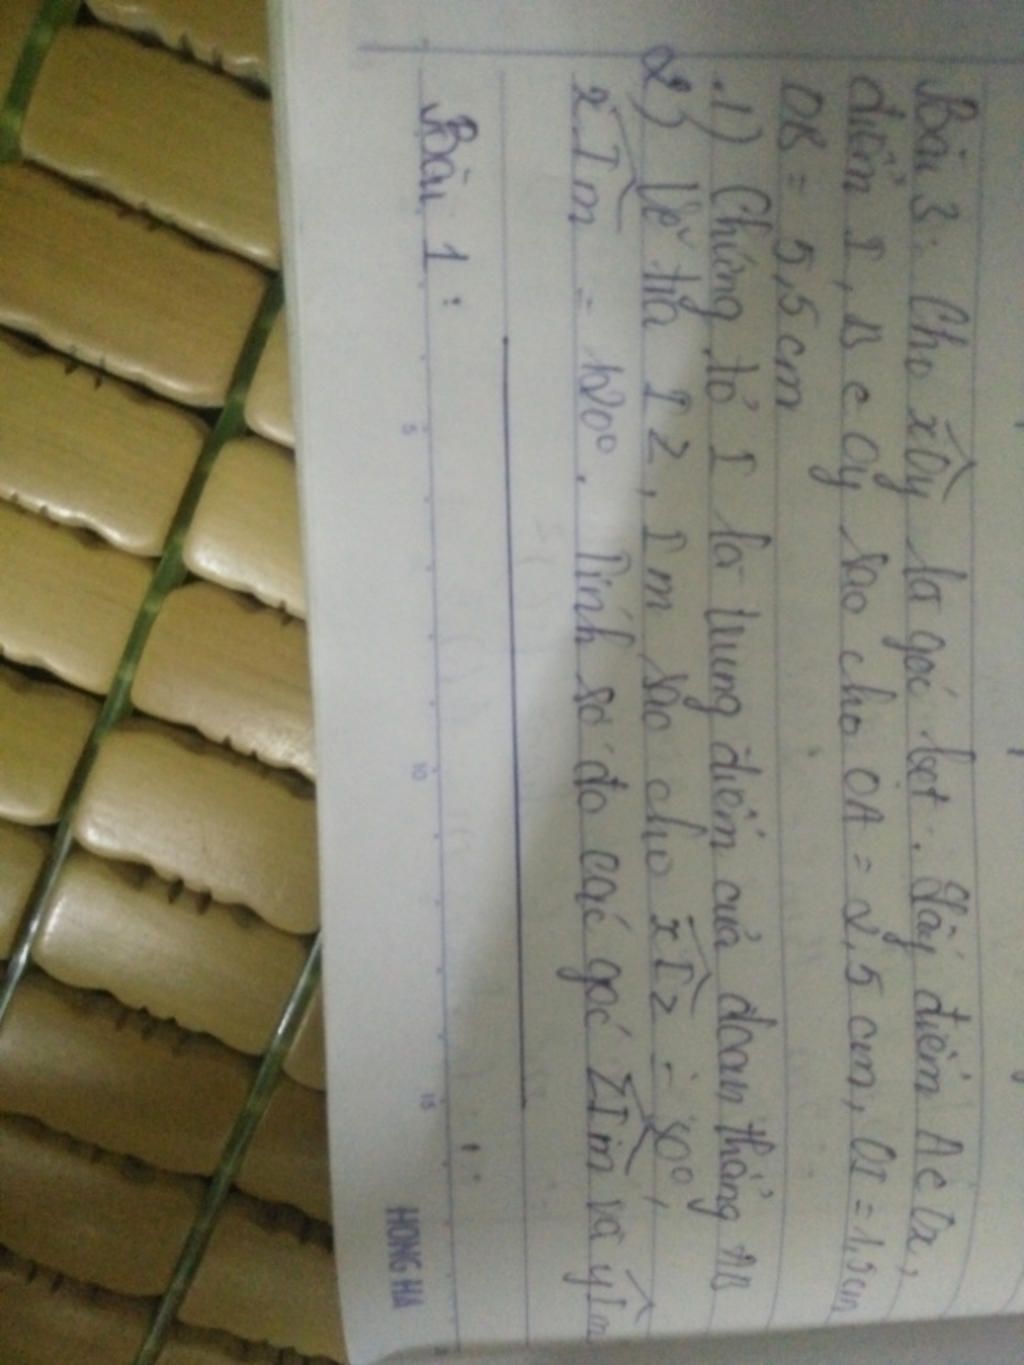 Bài 3: Cho xOy là góc bẹt. Lấy điểm A ∈ Ox,
điểm I, B ∈ Oy sao cho OA = 2,5 cm, OI = 1,5 cm
OB = 5,5 cm
1) Chứng tỏ I là trung điểm của đoạn thẳng AB
2) Vẽ tia Iz, Im sao cho xIz = 50°,
xIm = 120°. Tính số đo các góc zIm và yIm
Bài 1:
5
10
15
HONG HA